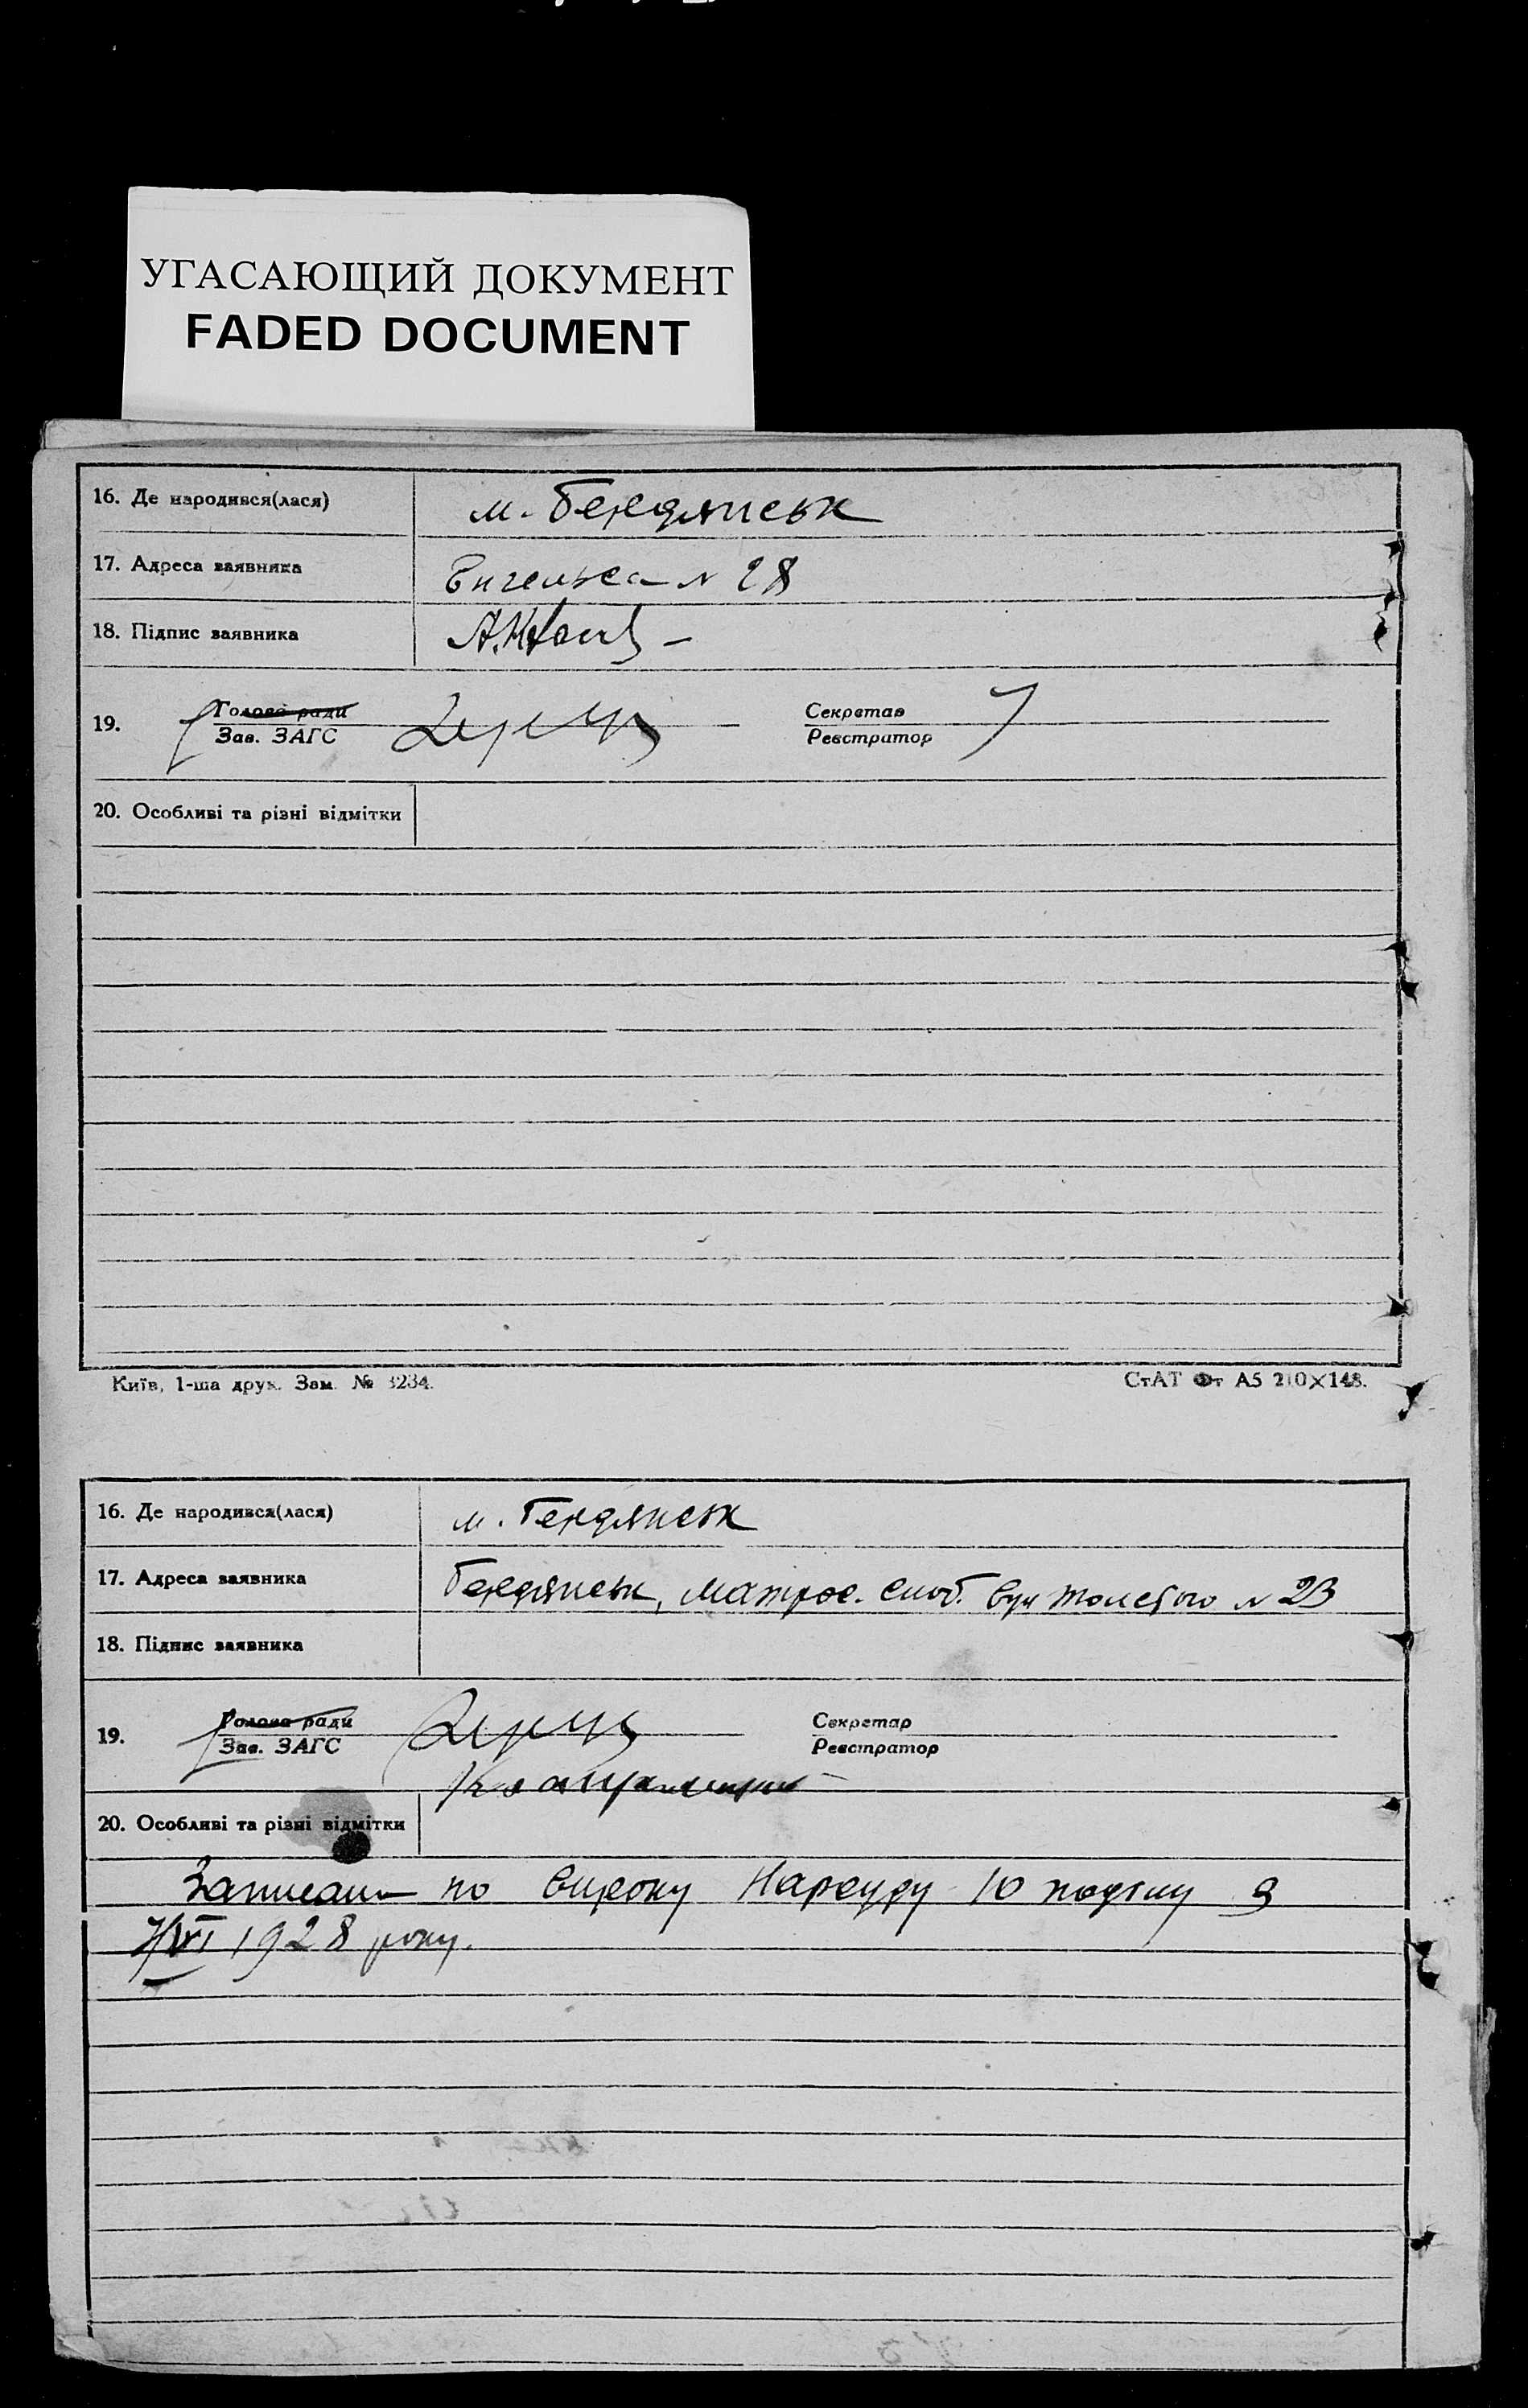 УГАСАЮЩИЙ ДОКУМЕНТ
FADED DOCUMENT
16. Де народився(лася) м. Бердянськ
17. Адреса заявника Енгельса N 28
18. Підпис заявника
19. Голова ради
Зав. ЗАГС
Секретар
Реєстратор
20. Особливі та різні відмітки
Київ, 1-ша друк. Зам. № 3234.
СтАТ Фт А5 210×148.
16. Де народився(лася) м. Бердянськ
17. Адреса заявника Бердянськ, матрос. слоб. вул Толстого N 23
18. Підпис заявника
19. Голова ради
Зав. ЗАГС
Секретар
Реєстратор
20. Особливі та різні відмітки
Записано по вироку Нарсуду 10 з
1928 року.